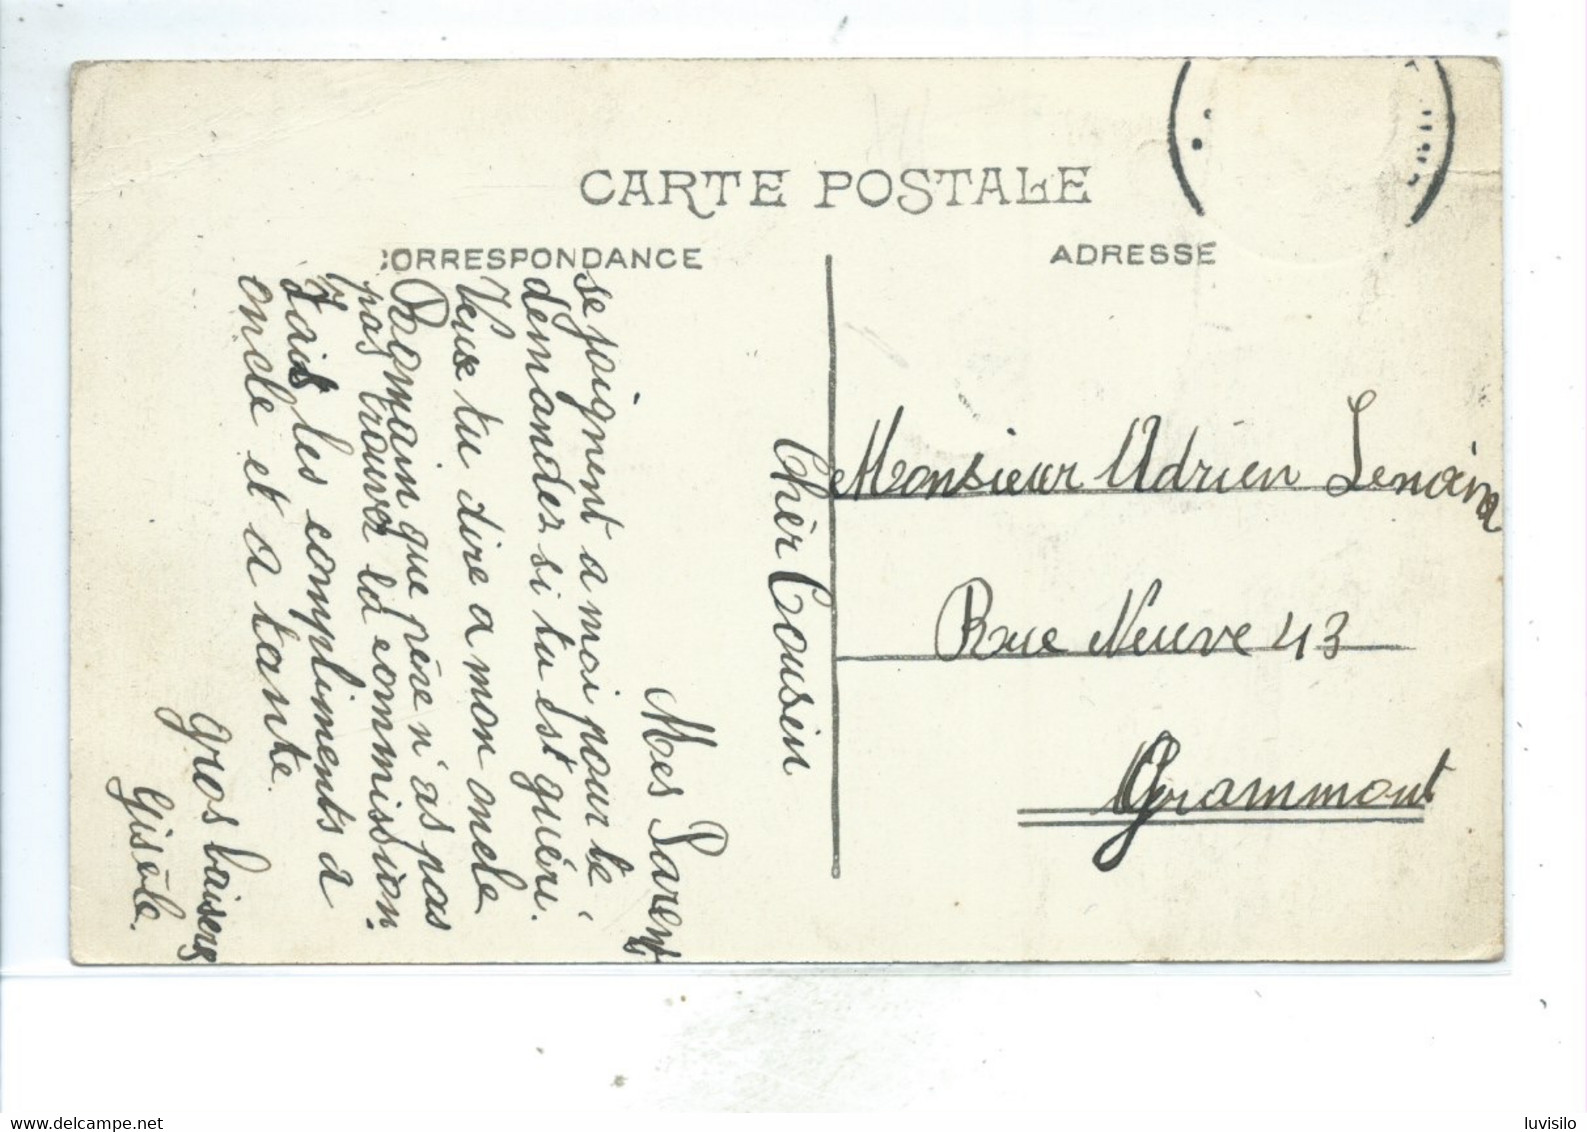 CARTE POSTALE
CORRESPONDANCE
ADRESSE
Chèr Cousin
Mes Parents
se joignent a moi pour te
demandez si tu est guéri.
Veux tu dire a mon oncle
Romain que père n'as pas
pas trouvé la commission.
Fais les compliments a
oncle et a tante.
gros baisers
Gisèle.
Monsieur Adrien Lenoir
Rue Neuve 43
Grammont
luvisilo